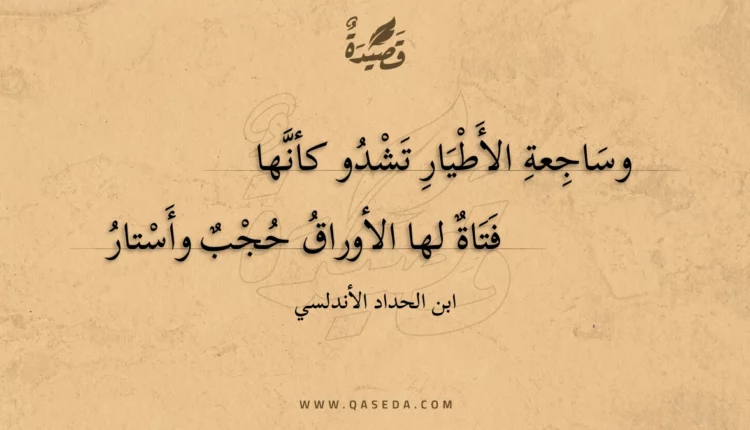 قَصِيْدَةٌ
وسَاجِعةِ الأَطْيَارِ تَشْدُو كأنَّها
فَتَاةٌ لها الأوراقُ حُجْبٌ وأَسْتارُ
ابن الحداد الأندلسي
WWW.QASEDA.COM